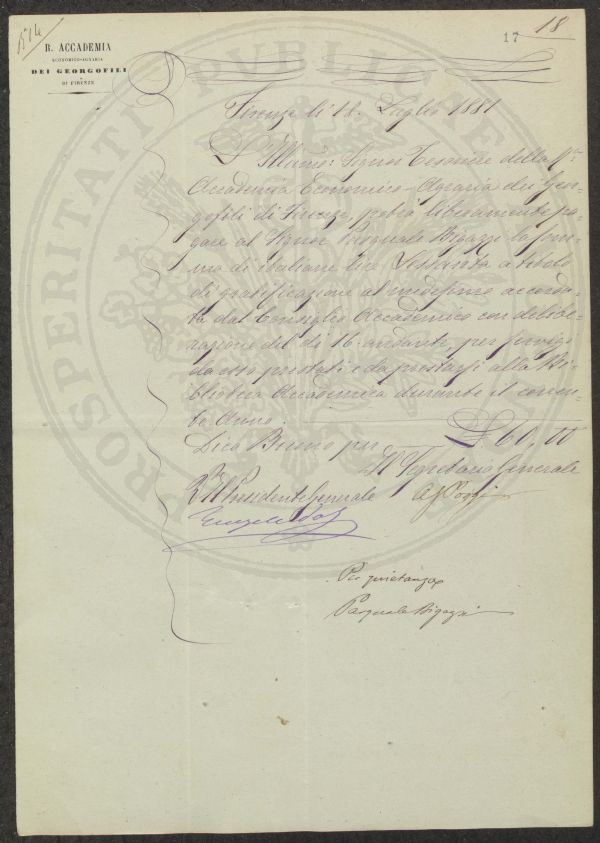 1514
17
18
R. ACCADEMIA
ECONOMICO-AGRARIA
DEI GEORGOFILI
DI FIRENZE
PROSPERITATI PUBLICAE
Firenze li 18. Luglio 1881
L'Illmo: Signor Tesoriere della R.
Accademia Economico-Agraria dei Geor-
gofili di Firenze, potrà liberamente pa-
gare al Signor Pasquale Bigazzi la som-
ma di italiane lire Sessanta a titolo
di gratificazione al medesimo accorda-
ta dal Consiglio Accademico con delibe-
razione del dì 16 andante, per servigi
da esso prestati e da prestarsi alla Bi-
blioteca Accademica durante il corren-
te Anno.
Dico Buono per L 60, 00
Il Segretario Generale
Il Presidente Generale
Per quietanza
Pasquale Bigazzi